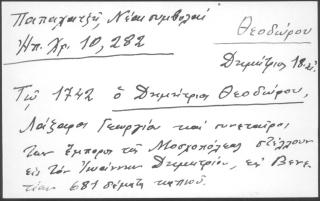 Παπαχατζῆ, Νέαι συμβολαί
Ἠπ. Χρ. 10, 282
Θεοδώρου
Δημήτριος 18. αἰ.
Τῷ 1742 ὁ Δημήτριος Θεοδώρου,
Λάζαρος Γεωργίου καὶ συνεταῖροι
των ἔμποροι τῆς Μοσχοπόλεως στέλλουν
εἰς τὸν Ἰωάννην Δημητρίου, εἰς Βενε
τίαν 681 δέματα καπνοῦ.